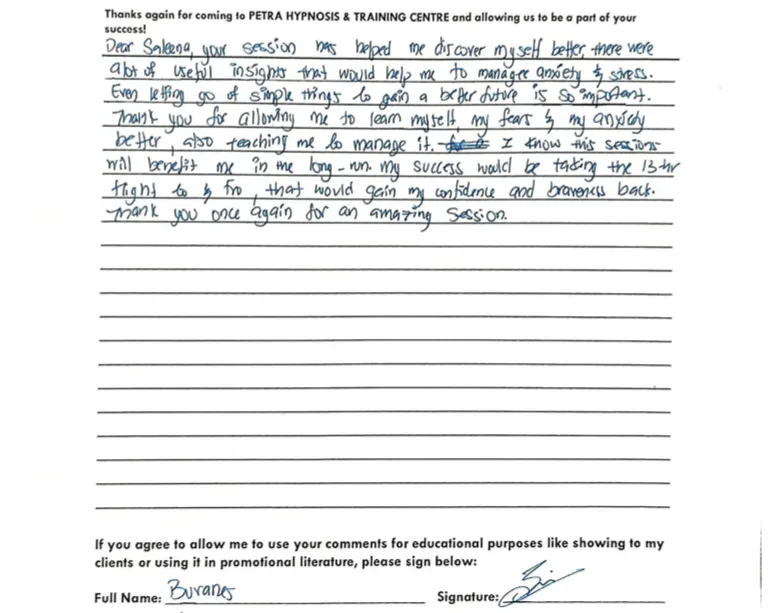 Thanks again for coming to PETRA HYPNOSIS & TRAINING CENTRE and allowing us to be a part of your
success!
Dear Saleena, your session has helped me discover myself better, there were
alot of useful insights that would help me to manage anxiety & stress.
Even letting go of simple things to gain a better future is so important.
Thank you for allowing me to learn myself, my fears & my anxiety
better, also teaching me to manage it. I know this sessions
will benefit me in the long-run. My success would be taking the 13 hr
flight to & fro, that would gain my confidence and braveness back.
Thank you once again for an amazing session.
If you agree to allow me to use your comments for educational purposes like showing to my
clients or using it in promotional literature, please sign below:
Full Name: Buvanes Signature: